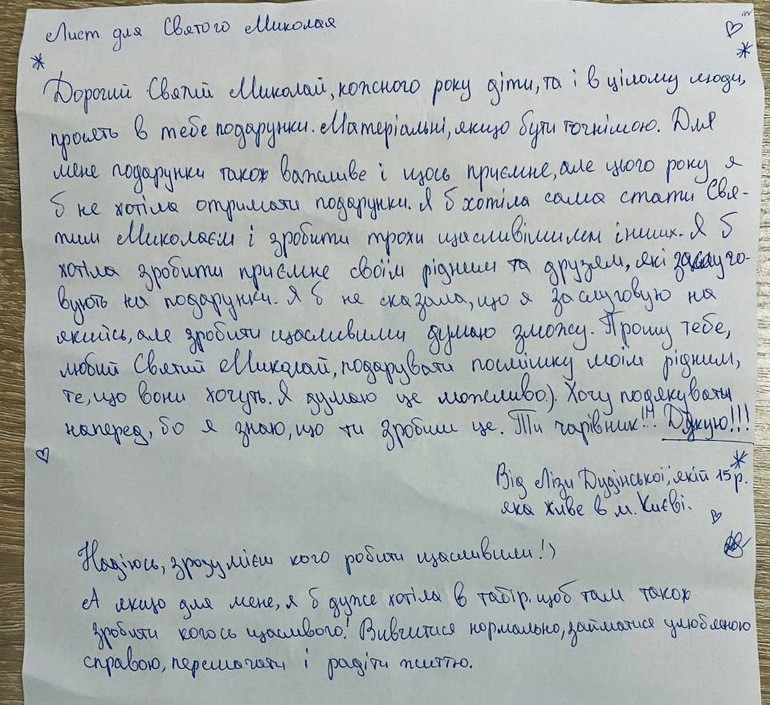 Лист для Святого Миколая
Дорогий Святий Миколай, кожного року діти, та і в цілому люди,
просять в тебе подарунки. Матеріальні, якщо бути точнішою. Для
мене подарунки також важливе і щось приємне, але цього року я
б не хотіла отримати подарунки. Я б хотіла сама стати Свя-
тим Миколаєм і зробити трохи щасливішими інших. Я б
хотіла зробити приємне своїм рідним та друзям, які заслуго-
вують на подарунки. Я б не сказала, що я заслуговую на
якийсь, але зробити щасливими думаю зможу. Прошу тебе,
любий Святий Миколай, подарувати посмішку моїм рідним,
те, що вони хочуть. Я думаю це можливо). Хочу подякувати
наперед, бо я знаю, що ти зробиш це. Ти чарівник!!! Дякую!!!
Від Лізи Дудінської, якій 15 р.
яка живе в м. Києві.
Надіюсь, зрозумієш кого робити щасливими!)
А якщо для мене, я б дуже хотіла в табір, щоб там також
зробити когось щасливого! Вивчитися нормально, займатися улюбленою
справою, перемагати і радіти життю.